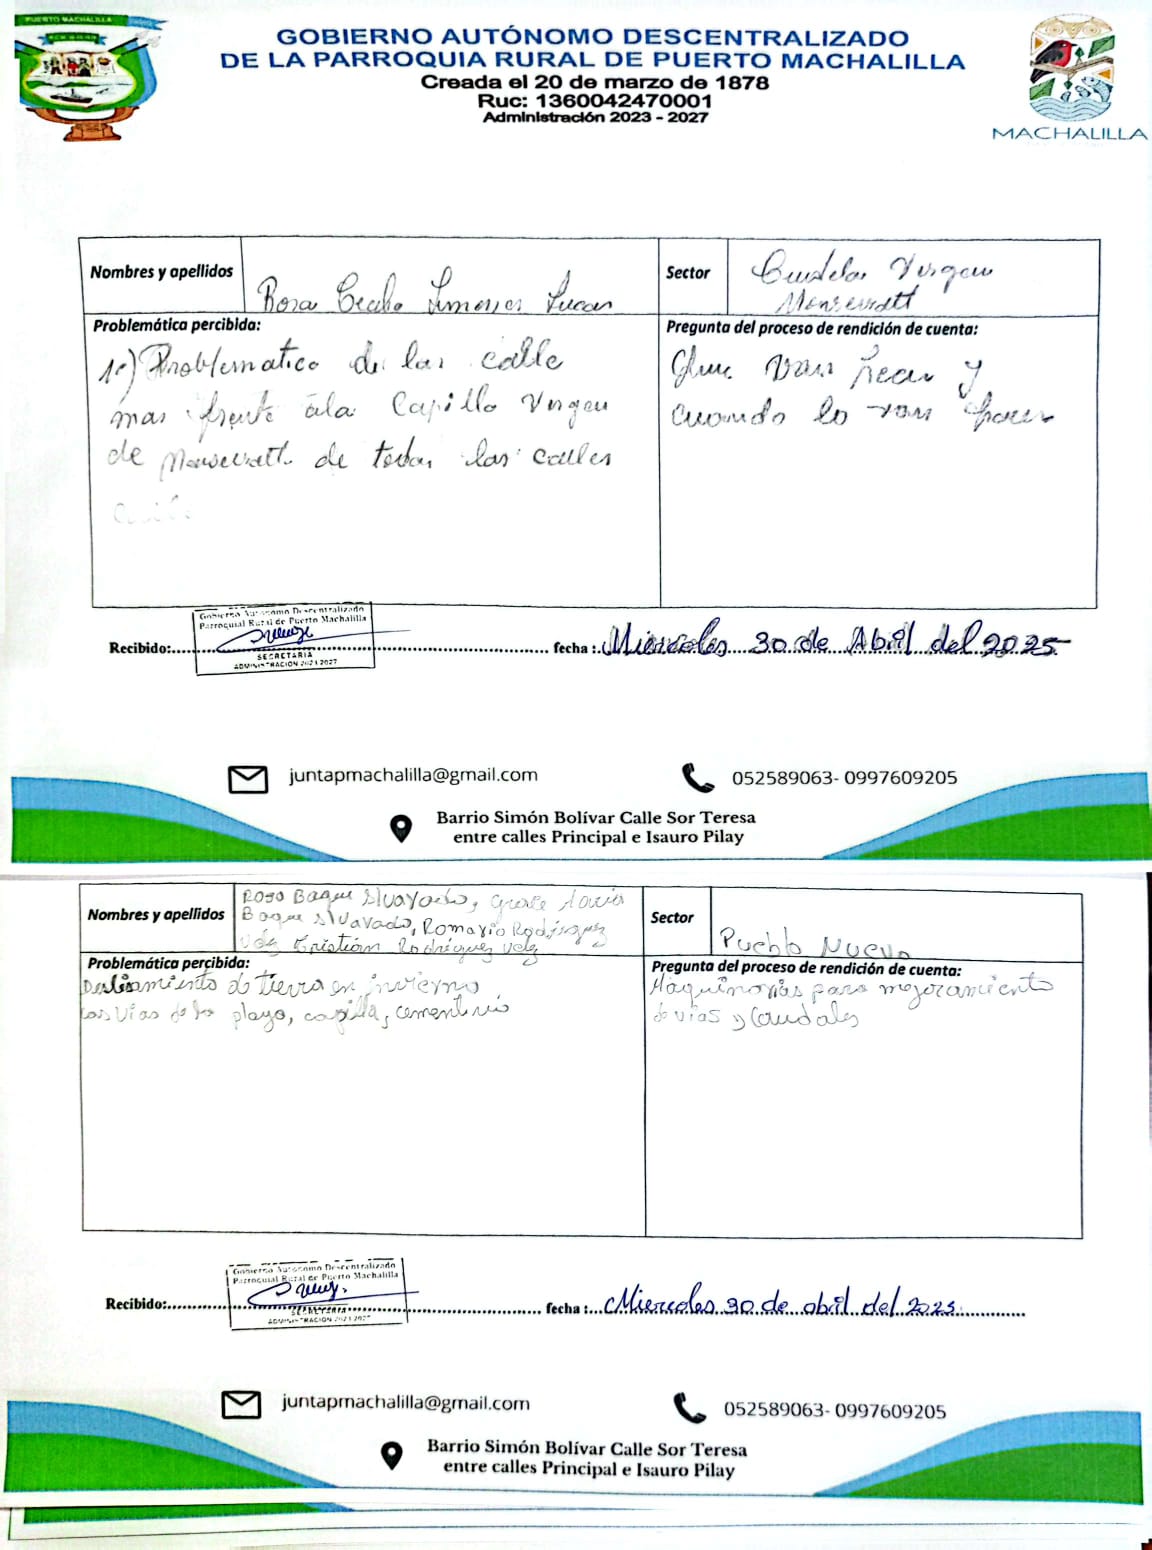 PUERTO MACHALILLA
GOBIERNO AUTÓNOMO DESCENTRALIZADO
DE LA PARROQUIA RURAL DE PUERTO MACHALILLA
Creada el 20 de marzo de 1878
Ruc: 1360042470001
Administración 2023 - 2027
MACHALILLA
Nombres y apellidos
Rosa
Sector
Virgen
Monserratt
Problemática percibida:
1º) Problematica de las calle
mas frente ala Capilla Virgen
de Monserratt de todas las calles
Pregunta del proceso de rendición de cuenta:
Que van hacer y
cuando lo van hacer
Gobierno Autonomo Descentralizado
Parroquial Rural de Puerto Machalilla
SECRETARIA
ADMINISTRACION 2023 2027
Recibido:
fecha : Miercoles 30 de Abril del 2025
juntapmachalilla@gmail.com
052589063- 0997609205
Barrio Simón Bolívar Calle Sor Teresa
entre calles Principal e Isauro Pilay
Nombres y apellidos
Baque
Baque Romario Rodriguez
Rodriguez Velez
Sector
Pueblo Nuevo
Problemática percibida:
de tierra en invierno
las vias de la playa, capilla, cementerio
Pregunta del proceso de rendición de cuenta:
Maquinarias para mejoramiento
de vias y Caudales
Gobierno Autonomo Descentralizado
Parroquial Rural de Puerto Machalilla
SECRETARIA
ADMINISTRACION 2023 2027
Recibido:
fecha : Miercoles 30 de abril del 2025
juntapmachalilla@gmail.com
052589063- 0997609205
Barrio Simón Bolívar Calle Sor Teresa
entre calles Principal e Isauro Pilay